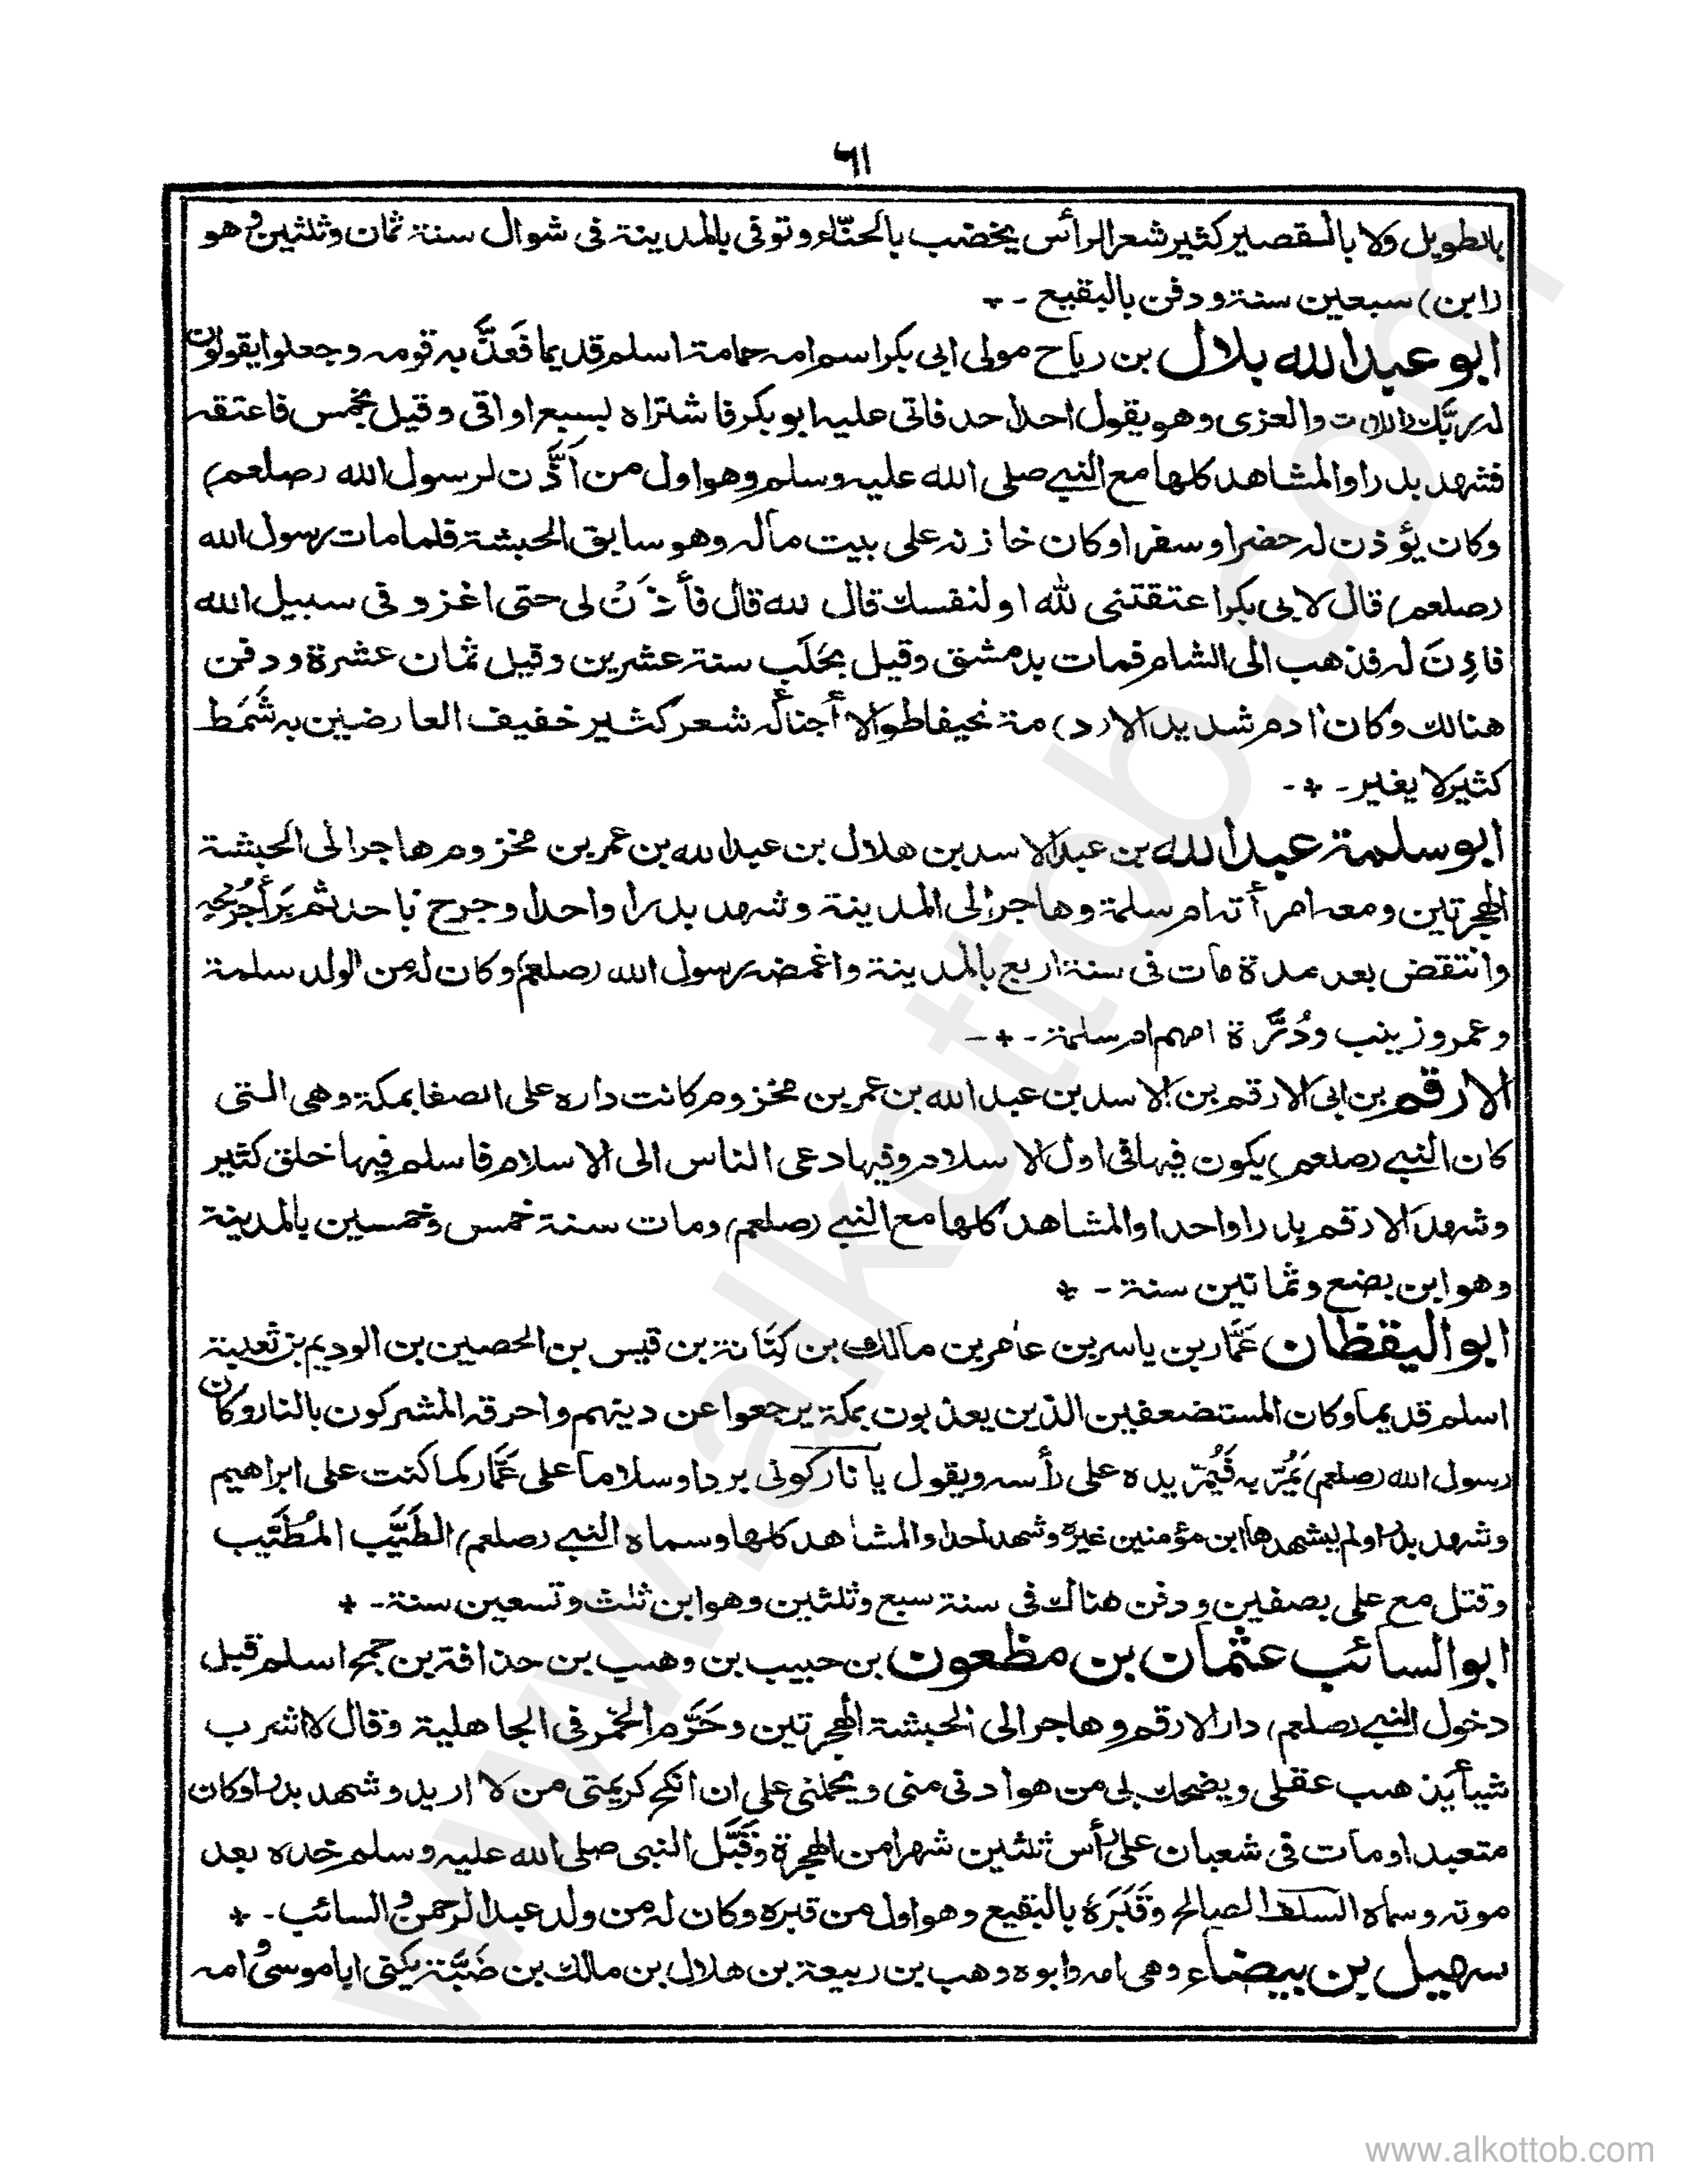 ٦١
بالطويل ولا بالقصير كثير شعر الرأس يخضب بالحنّاء وتوفى بالمدينة فى شوال سنة ثمان وثلثين وهو
(ابن) سبعين سنة ودفن بالبقيع ـ *
ابو عبدالله بلال بن رباح مولى ابى بكر اسم امه حمامة اسلم قديما فَعذَّ به قومه وجعلوا يقولون
له ربّك اللات والعزى وهو يقول احد احد فاتى عليه ابو بكر فاشتراه بسبع اواقى وقيل بخمس فاعتقه
فشهد بدرا والمشاهد كلها مع النبى صلى الله عليه وسلم وهو اول من اَذَّن لرسول الله (صلعم)
وكان يؤذن له حضرا وسفرا وكان خازنه على بيت ماله وهو سابق الحبشة فلما مات رسول الله
(صلعم) قال لابى بكر اعتقتنى لله او لنفسك قال لله قال فأذَنْ لى حتى اغزو فى سبيل الله
فاذِنَ له فذهب الى الشام فمات بدمشق وقيل بحَلَب سنة عشرين وقيل ثمان عشرة ودفن
هنالك وكان ادم شديد الا(د)مة نحيفا طوالا أجنأله شعر كثير خفيف العارضين به شَمَط
كثير لا يغير ـ * ـ
ابو سلمة عبدالله بن عبدالاسد بن هلال بن عبدالله بن عمر بن مخزوم هاجر الى الحبشة
الهجرتين ومعه امرأته ام سلمة وهاجر الى المدينة وشهد بدرا واحدا وجرح باحد ثم بَرَأ جُرْحه
وانتقض بعد مدة مات فى سنة اربع بالمدينة واغمضه رسول الله (صلعم) وكان له من الولد سلمة
وعمر وزينب ودُرَّة امهم ام سلمة ـ * ـ
الارقم بن ابى الارقم بن الاسد بن عبدالله بن عمر بن مخزوم كانت داره على الصفا بمكة وهى التى
كان النبى (صلعم) يكون فيها فى اول الاسلام وفيها دعى الناس الى الاسلام فاسلم فيها خلق كثير
وشهد الارقم بدرا واحدا والمشاهد كلها مع النبى (صلعم) ومات سنة خمس وخمسين بالمدينة
وهو ابن بضع وثمانين سنة ـ *
ابو اليقظان عَمَّار بن ياسر بن عامر بن مالك بن كِنَانة بن قيس بن الحصين بن الوديم بن ثعلبة
اسلم قديما وكان المستضعفين الذين يعذبون بمكة يرجعوا عن دينهم واحرقه المشركون بالنار وكان
رسول الله (صلعم) يَمُرّ به فَيُمِرّ يده على رأسه ويقول يا نار كونى بردا وسلاما على عَمَّار كما كنت على ابراهيم
وشهد بدرا ولم يشهدها ابن مؤمنين غيره وشهد احدا والمشاهد كلها وسماه النبى (صلعم) الطَيِّب المُطَيَّب
وقتل مع على بصفين ودفن هناك فى سنة سبع وثلثين وهو ابن ثلث وتسعين سنة ـ *
ابو السائب عثمان بن مظعون بن حبيب بن وهب بن حذافة بن جمح اسلم قبل
دخول النبى (صلعم) دار الارقم وهاجر الى الحبشة الهجرتين وحَرَّم الخمر فى الجاهلية وقال لا اشرب
شيأ يذهب عقلى ويضحك بى من هو ادنى منى ويحملنى على ان انكح كريمتى من لا اريد وشهد بدرا وكان
متعبدا ومات فى شعبان على رأس ثلثين شهرا من الهجرة وقَبَّل النبى صلى الله عليه وسلم خده بعد
موته وسماه السلف الصالح وقَبَرَهُ بالبقيع وهو اول من قبره وكان له من ولد عبدالرحمن والسائب ـ *
سهيل بن بيضاء وهى امه وابوه وهب بن ربيعة بن هلال بن مالك بن ضَبَّة يكنى ابا موسى امه
www.alkottob.com
www.alkottob.com